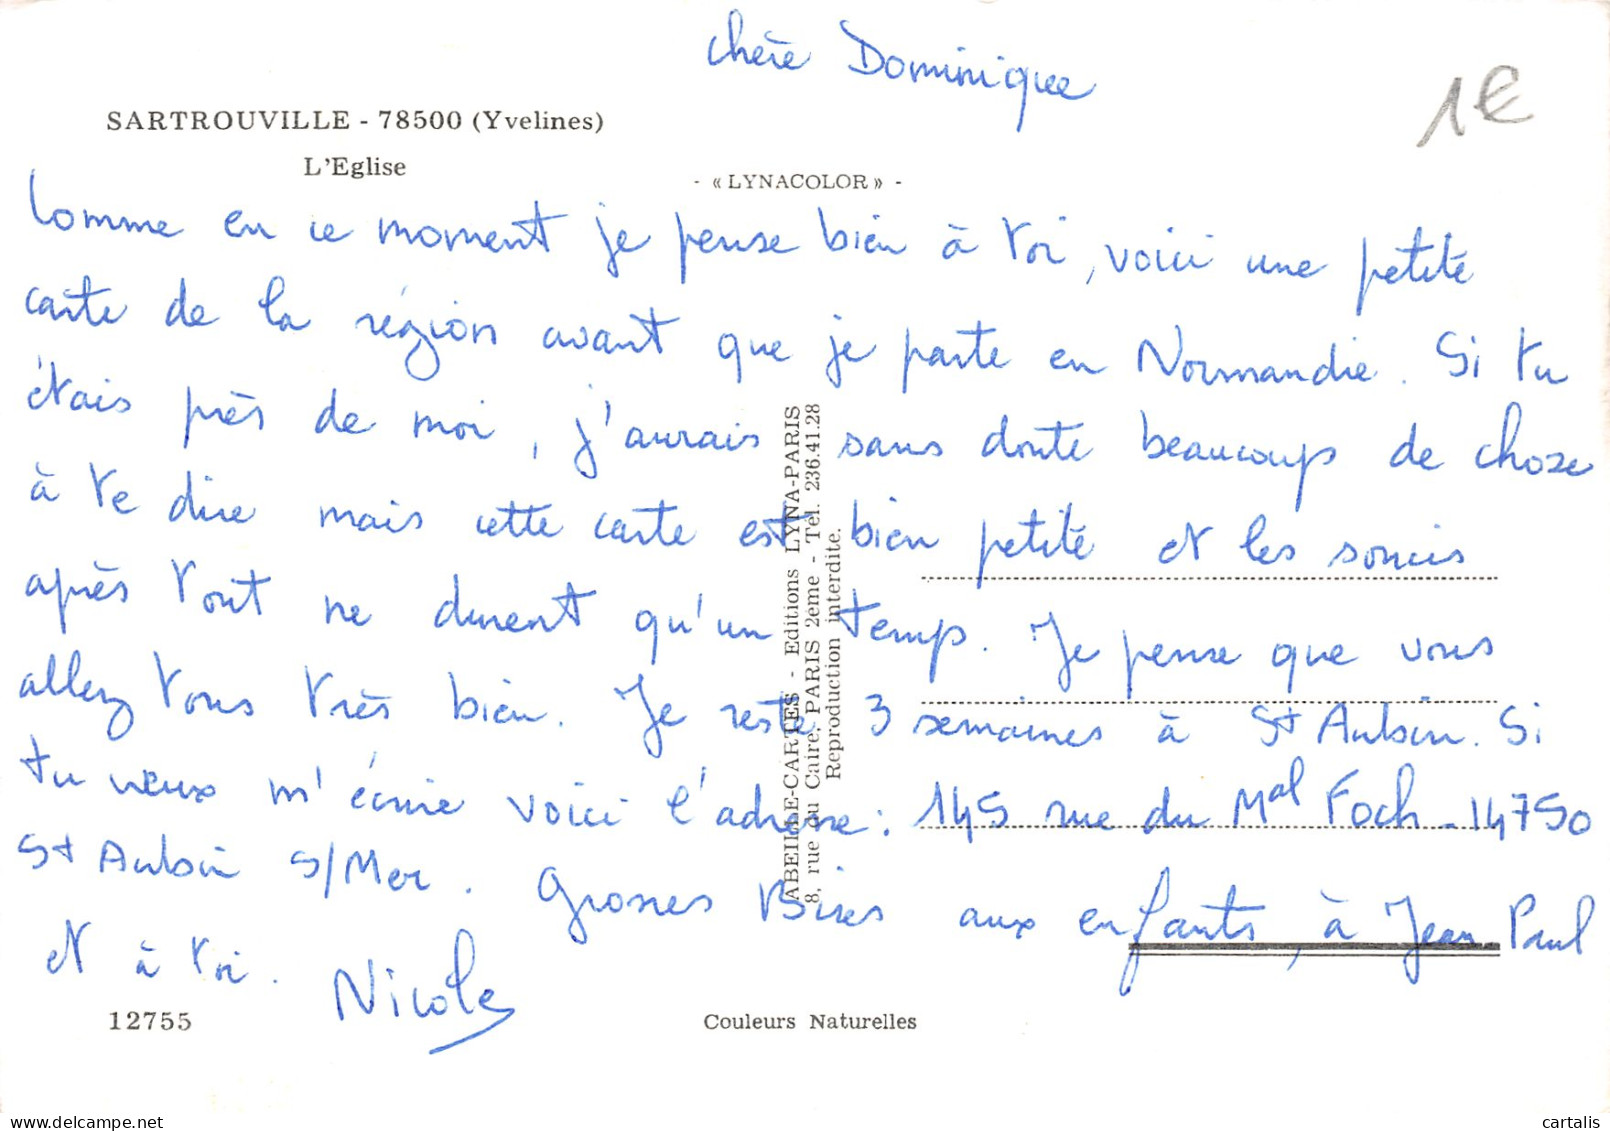 chère Dominique
1€
SARTROUVILLE - 78500 (Yvelines)
L'Eglise
- « LYNACOLOR » -
Comme en ce moment je pense bien à toi, voici une petite
carte de la région avant que je parte en Normandie. Si tu
étais près de moi, j'aurais sans doute beaucoup de chose
à te dire mais cette carte est bien petite et les soucis
après tout ne durent qu'un temps. Je pense que vous
allez tous très bien. Je reste 3 semaines à St Aubin. Si
tu veux m'écrire voici l'adresse : 145 rue du Mal Foch - 14750
St Aubin s/Mer. Grosses Bises aux enfants, à Jean Paul
et à toi. Nicole
ABEILLE-CARTES - Editions LYNA-PARIS
8, rue du Caire, PARIS 2ème - Tél. 236.41.28
Reproduction interdite.
12755
Couleurs Naturelles
delcampe.net
cartalis